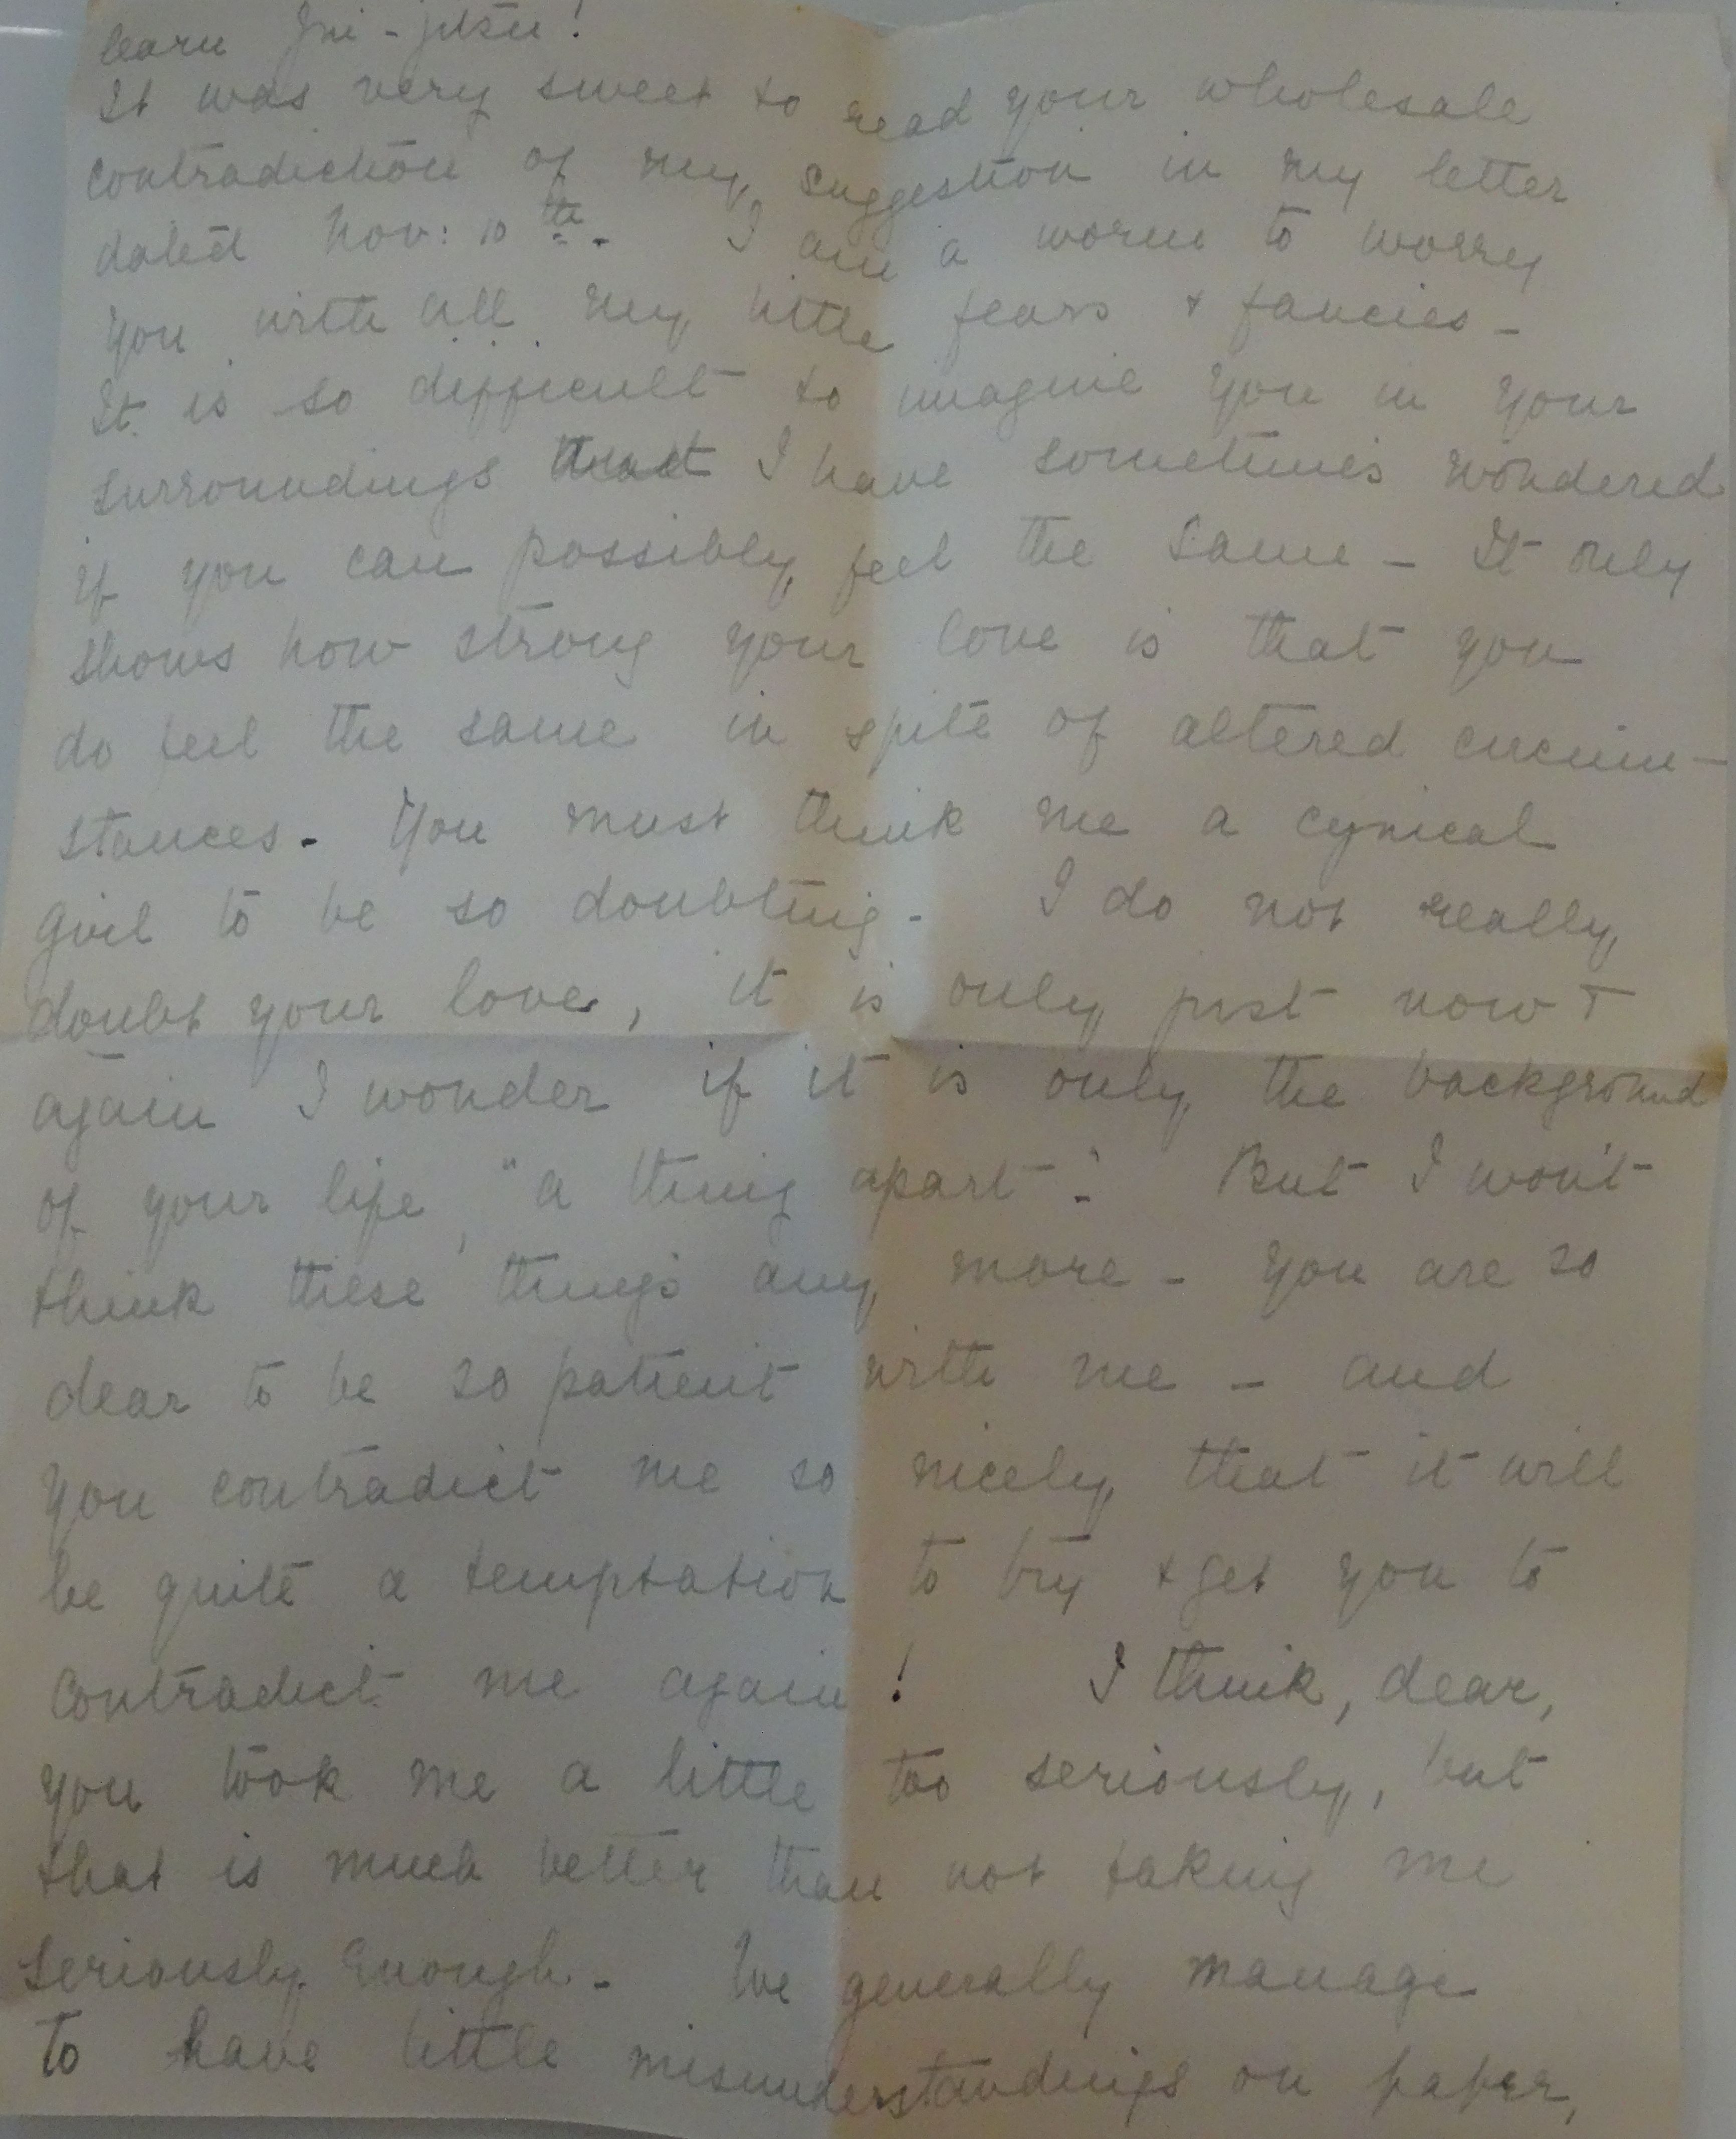 learn Jui-jutsu!
It was very sweet to read your wholesale
contradiction of my suggestion in my letter
dated Nov: 10th. I am a worm to worry
you with all my little fears & fancies -
It is so difficult to imagine you in your
surroundings that I have sometimes wondered
if you can possibly feel the same - It only
shows how strong your love is that you
do feel the same in spite of altered circum-
stances. You must think me a cynical
girl to be so doubting. I do not really
doubt your love, it is only just now &
again I wonder if it is only the background
of your life, "a thing apart". But I won't
think these things any more - you are so
dear to be so patient with me - and
you contradict me so nicely that it will
be quite a temptation to try & get you to
contradict me again! I think, dear,
you took me a little too seriously, but
that is much better than not taking me
seriously enough. We generally manage
to have little misunderstandings on paper,